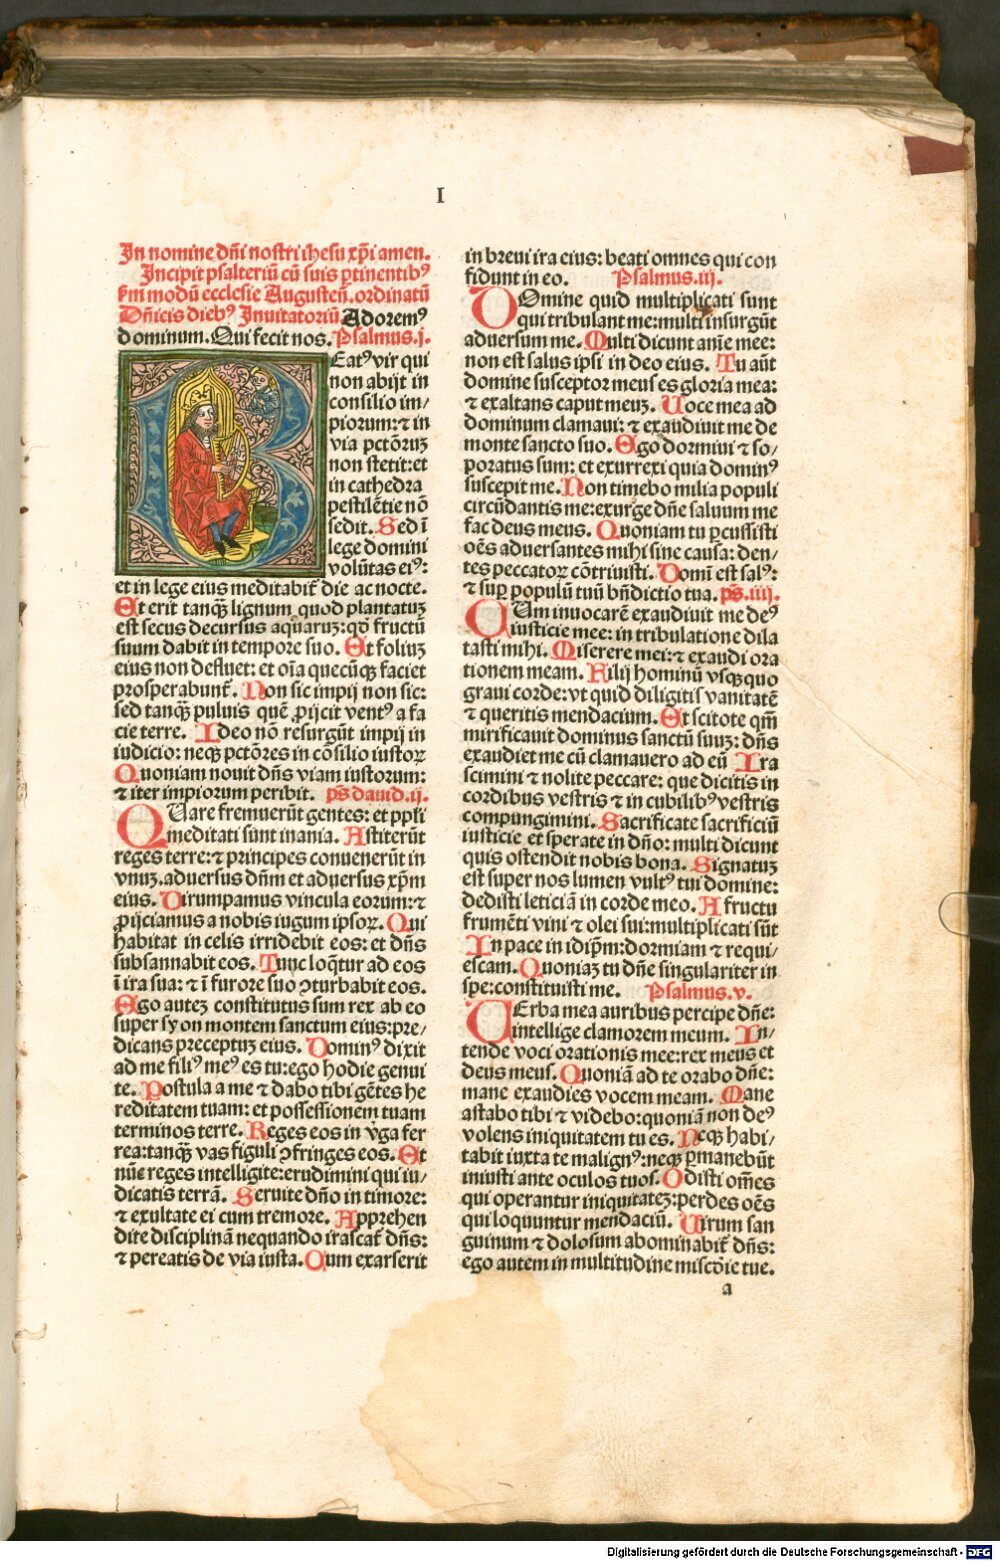 I
In nomine dñi nostri ihesu xp̃i amen.
Incipit psalteriũ cũ suis ꝑtinentibꝰ
scďm modũ ecclesie Augusteñ. ordinatũ
Dñicis diebꝰ Inuitatoriũ Adoremꝰ
dominum. Qui fecit nos. Psalmus.j.
BEatꝰ vir qui
non abijt in
consilio im/
piorum: ⁊ in
via pctõruꝫ
non stetit: et
in cathedra
pestilẽtie nõ
sedit. Sed ĩ
lege domini
volũtas eiꝰ:
et in lege eius meditabit̃ die ac nocte.
Et erit tanqꝫ̃ lignum quod plantatuꝫ
est secus decursus aquaruꝫ: qđ fructũ
suum dabit in tempore suo. Et foliuꝫ
eius non defluet: et oĩa quecũqꝫ faciet
prosperabunt̃. Non sic impij non sic:
sed tanqꝫ̃ puluis quẽ ꝓijcit ventꝰ a fa
cie terre. Ideo nõ resurgũt impij in
iudicio: neqꝫ pctõres in cõsilio iustoꝝ
Quoniam nouit dñs viam iustorum:
⁊ iter impiorum peribit. ps̃ dauid.ij.
QUare fremuerũt gentes: et ppłi
meditati sunt inania. Astiterũt
reges terre: ⁊ principes conuenerũt in
vnuꝫ. aduersus dñm et aduersus xp̃m
eius. Dirumpamus vincula eorum: ⁊
ꝓijciamus a nobis iugum ipsoꝝ. Qui
habitat in celis irridebit eos: et dñs
subsannabit eos. Tunc loq̃tur ad eos
ĩ ira sua: ⁊ ĩ furore suo ꝯturbabit eos.
Ego auteꝫ constitutus sum rex ab eo
super syon montem sanctum eius: pre/
dicans preceptuꝫ eius. Dominꝰ dixit
ad me filiꝰ meꝰ es tu: ego hodie genui
te. Postula a me ⁊ dabo tibi gẽtes he
reditatem tuam: et possessionem tuam
terminos terre. Reges eos in v̾ga fer
rea: tanqꝫ̃ vas figuli ꝯfringes eos. Et
nũc reges intelligite: erudimini qui iu/
dicatis terrã. Seruite dño in timore:
⁊ exultate ei cum tremore. Apprehen
dite disciplinã nequando irascat̃ dñs:
⁊ pereatis de via iusta. Cum exarserit
in breui ira eius: beati omnes qui con
fidunt in eo. Psalmus.iij.
DOmine quid multiplicati sunt
qui tribulant me: multi insurgũt
aduersum me. Multi dicunt anĩe mee:
non est salus ipsi in deo eius. Tu aũt
domine susceptor meus es gloria mea:
⁊ exaltans caput meuꝫ. Uoce mea ad
dominum clamaui: ⁊ exaudiuit me de
monte sancto suo. Ego dormiui ⁊ so/
poratus sum: et exurrexi quia dominꝰ
suscepit me. Non timebo milia populi
circũdantis me: exurge dñe saluum me
fac deus meus. Quoniam tu ꝑcussisti
oẽs aduersantes mihi sine causa: den/
tes peccatoꝝ cõtriuisti. Domĩ est salꝰ:
⁊ suꝑ populũ tuũ bñdictio tua. ps̃.iiij.
CUm inuocarẽ exaudiuit me deꝰ
iusticie mee: in tribulatione dila
tasti mihi. Miserere mei: ⁊ exaudi ora
tionem meam. Filij hominũ vsqꝫquo
graui corde: vt quid diligitis vanitatẽ
⁊ queritis mendacium. Et scitote qm̃
mirificauit dominus sanctũ suuꝫ: dñs
exaudiet me cũ clamauero ad eũ Ira
scimini ⁊ nolite peccare: que dicitis in
cordibus vestris ⁊ in cubilibꝰ vestris
compungimini. Sacrificate sacrificiũ
iusticie et sperate in dño: multi dicunt
quis ostendit nobis bona. Signatuꝫ
est super nos lumen vultꝰ tui domine:
dedisti leticiã in corde meo. A fructu
frumẽti vini ⁊ olei sui: multiplicati sũt
In pace in idip̃m: dormiam ⁊ requi/
escam. Quoniaꝫ tu dñe singulariter in
spe: constituisti me. Psalmus.v.
UErba mea auribus percipe dñe:
intellige clamorem meum. In/
tende voci orationis mee: rex meus et
deus meus. Quoniã ad te orabo dñe:
mane exaudies vocem meam. Mane
astabo tibi ⁊ videbo: quoniã non deꝰ
volens iniquitatem tu es. Neqꝫ habi/
tabit iuxta te malignꝰ: neqꝫ ꝑmanebũt
iniusti ante oculos tuos. Odisti om̃es
qui operantur iniquitateꝫ: perdes oẽs
qui loquuntur mendaciũ. Uirum san
guinum ⁊ dolosum abominabit̃ dñs:
ego autem in multitudine misc̃ðie tue.
a
Digitalisierung gefördert durch die Deutsche Forschungsgemeinschaft - DFG